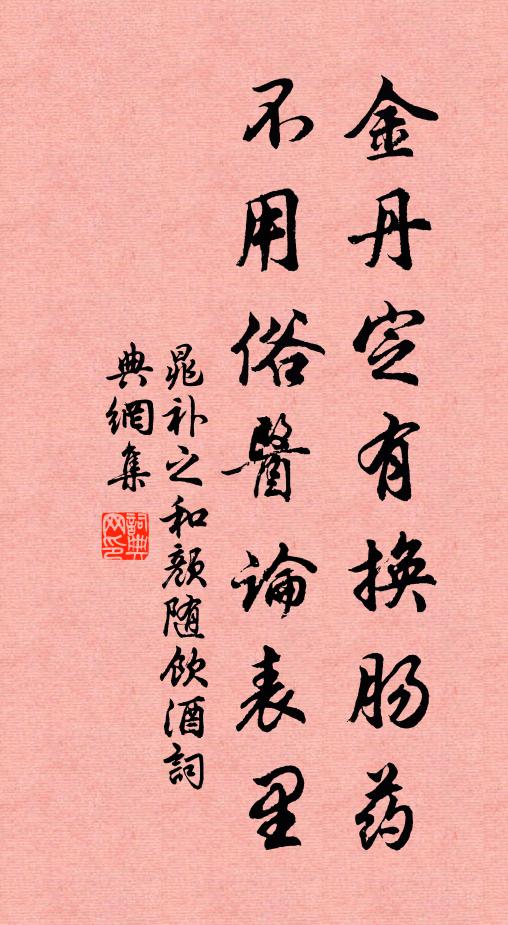 金丹定有换肠药
不用俗醫論表里
晁补之和颜随饮酒詞
典網集
詞典網印